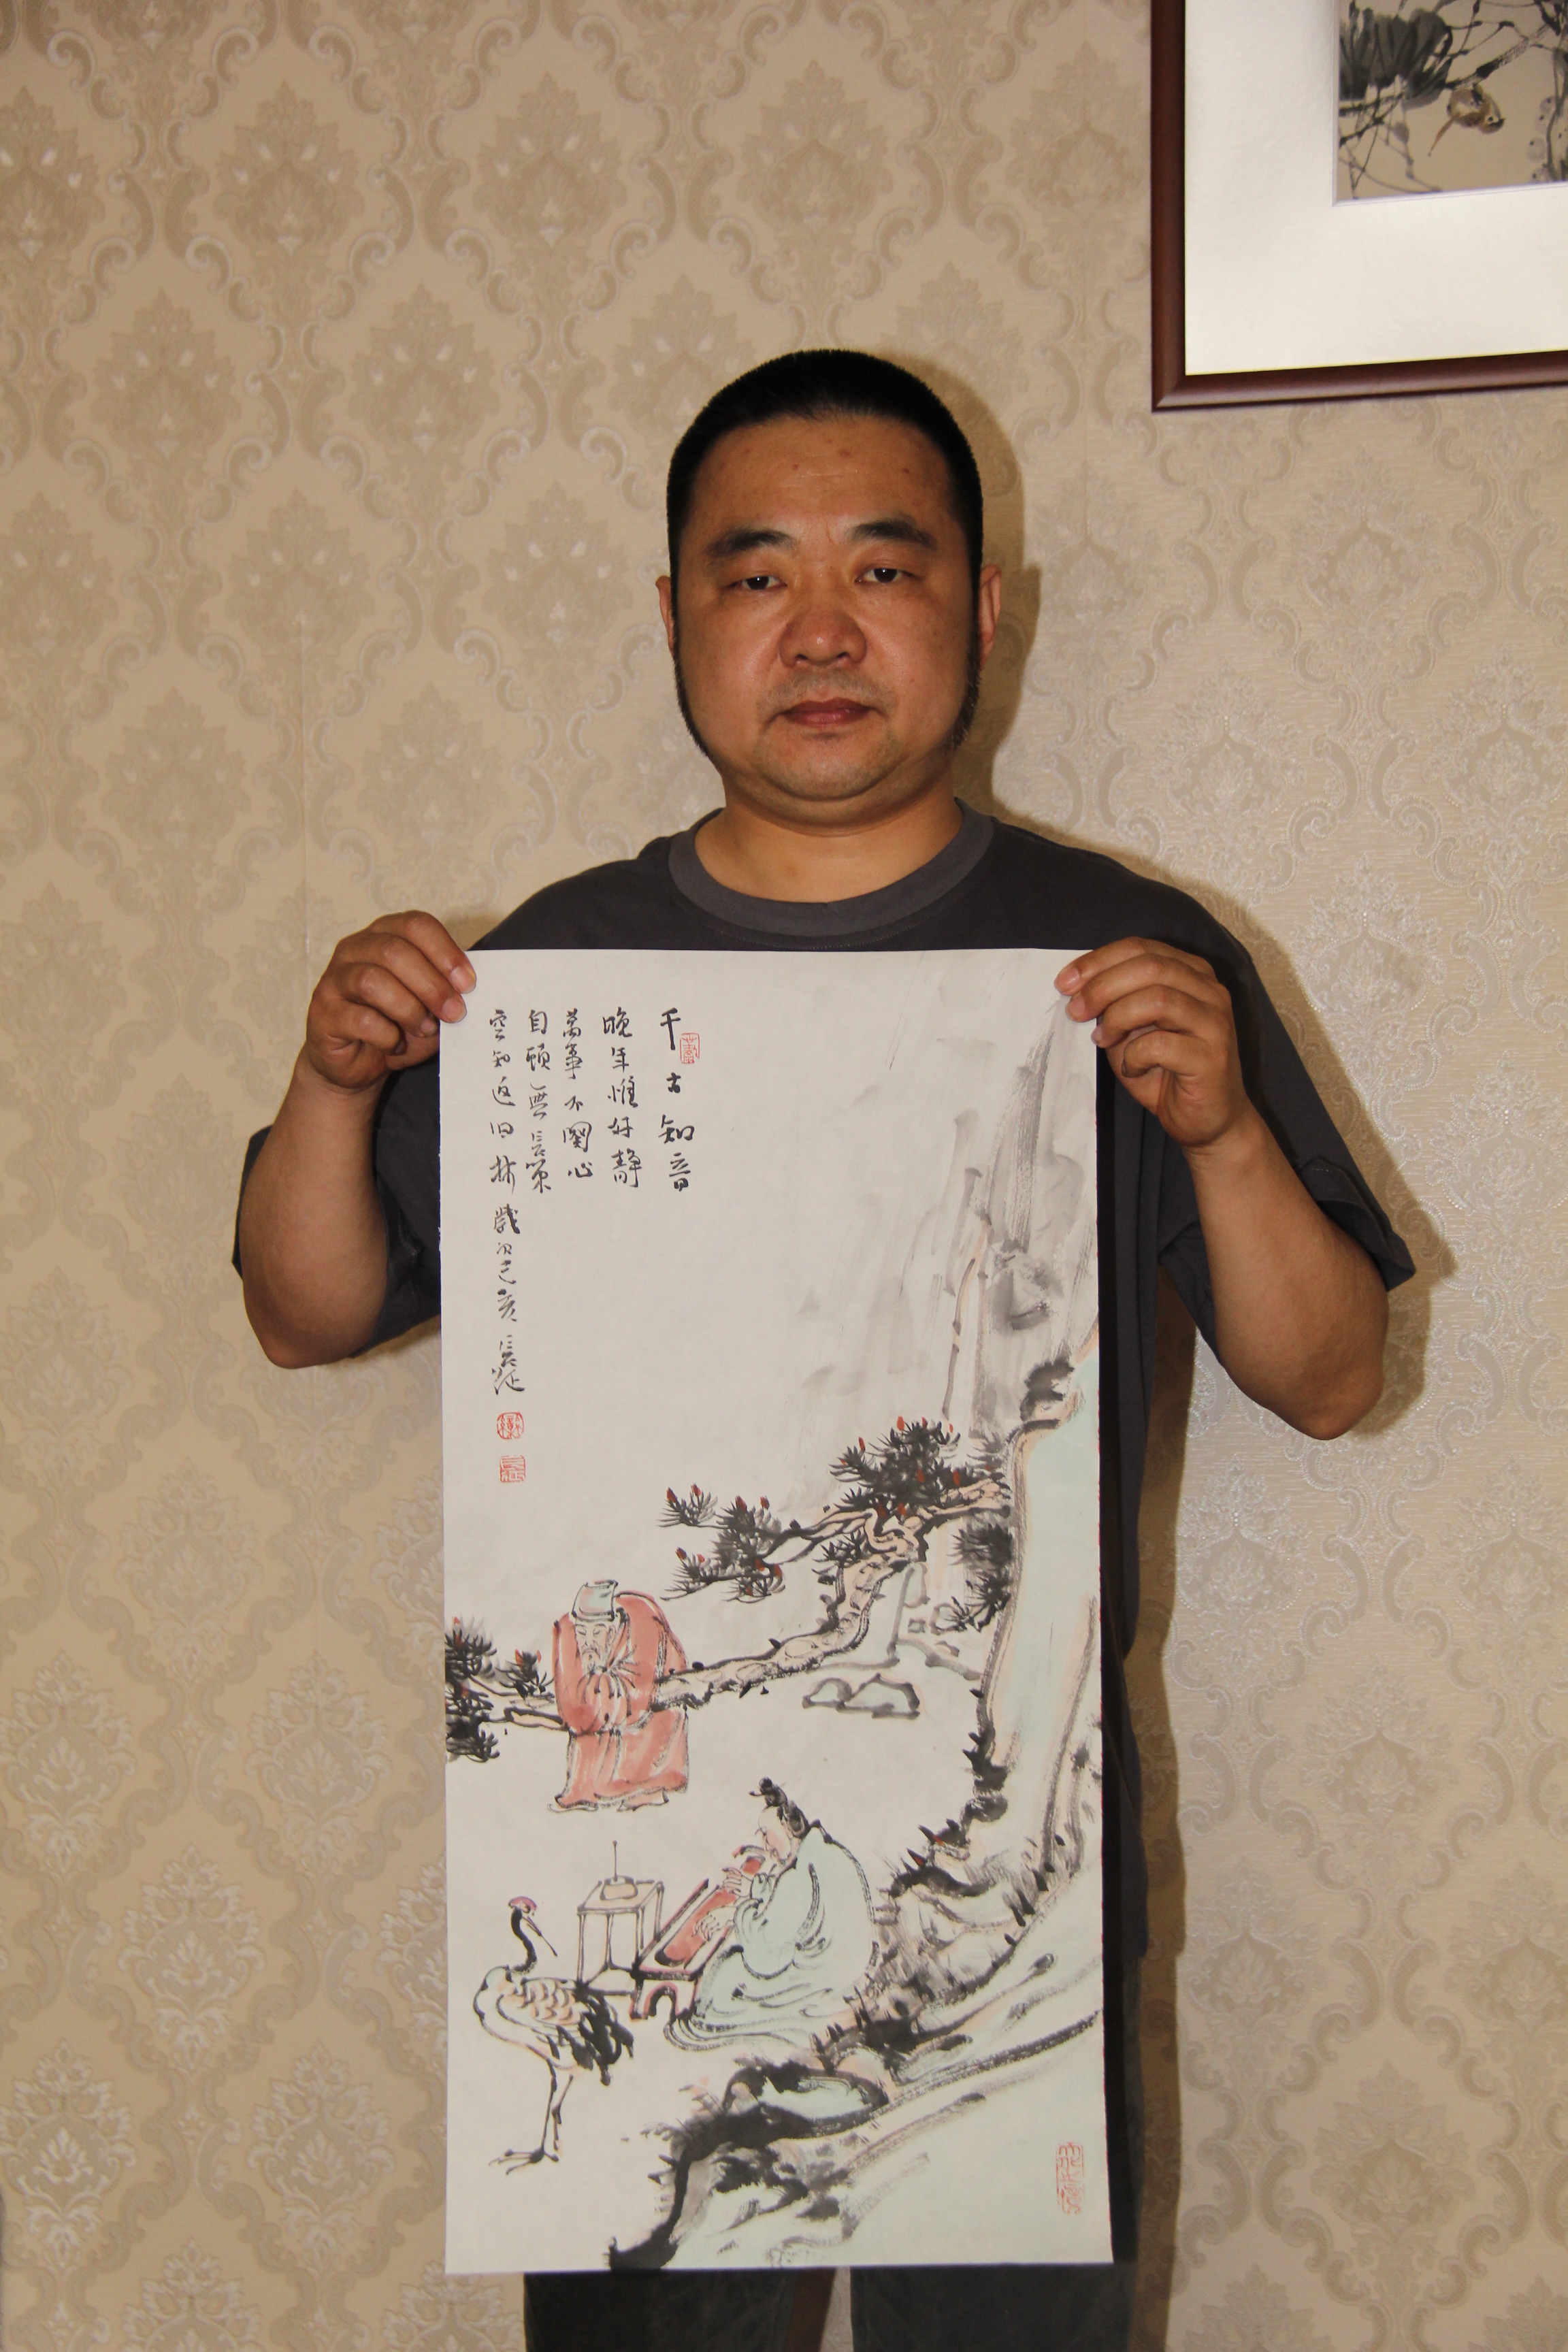 千古知音
晚年惟好靜
萬事不關心
自顧無長策
空知返旧林 歲次己亥